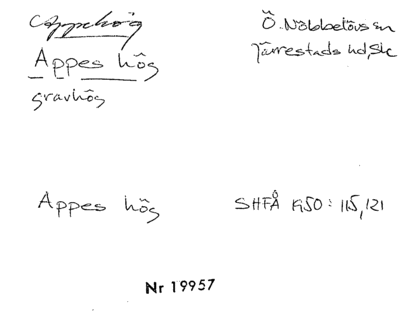 Appehög
Ö. Nöbbelövs sn
Appes hög
Järrestads hd, Sk
gravhög
Appes hög
SHFÅ 1950: 115, 121
Nr 19957